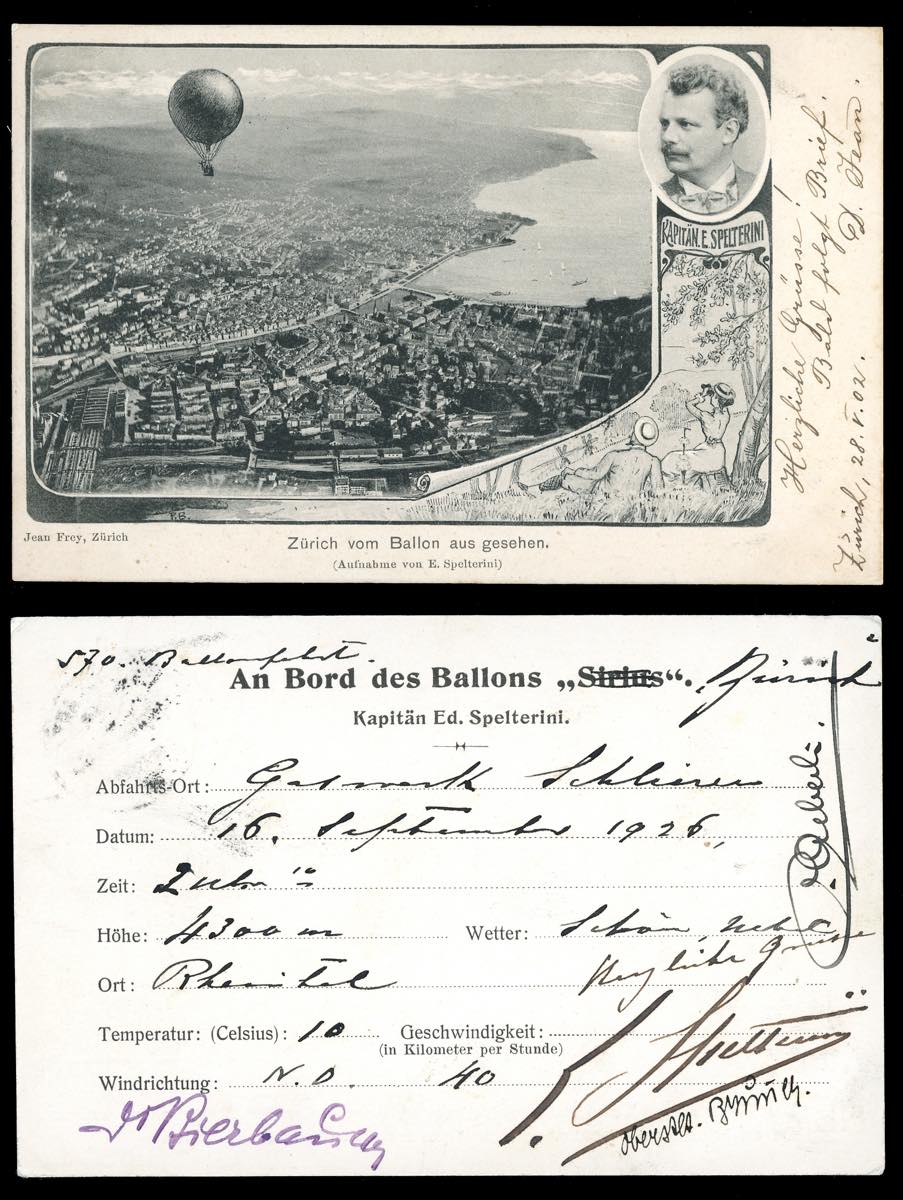 KAPITÄN. E. SPELTERINI
Herzliche Grüsse!
Bald folgt Brief.
D. Jean.
Zürich, 28.V.02.
F.B.
Jean Frey, Zürich
Zürich vom Ballon aus gesehen.
(Aufnahme von E. Spelterini)
570. Ballonfahrt.
An Bord des Ballons „Sirius“. „Zürich“
Kapitän Ed. Spelterini.
Abfahrts-Ort: Gaswerk Schlieren
Datum: 16. September 1926,
Zeit: 2 Uhr
Höhe: 4300 m Wetter: Schön,
Ort: Rheintal
Herzliche Grüsse
Temperatur: (Celsius): 10 Geschwindigkeit:
(in Kilometer per Stunde)
Windrichtung: N.O. 40
E. Spelterini
Dr Bierbaum
Oberstlt.